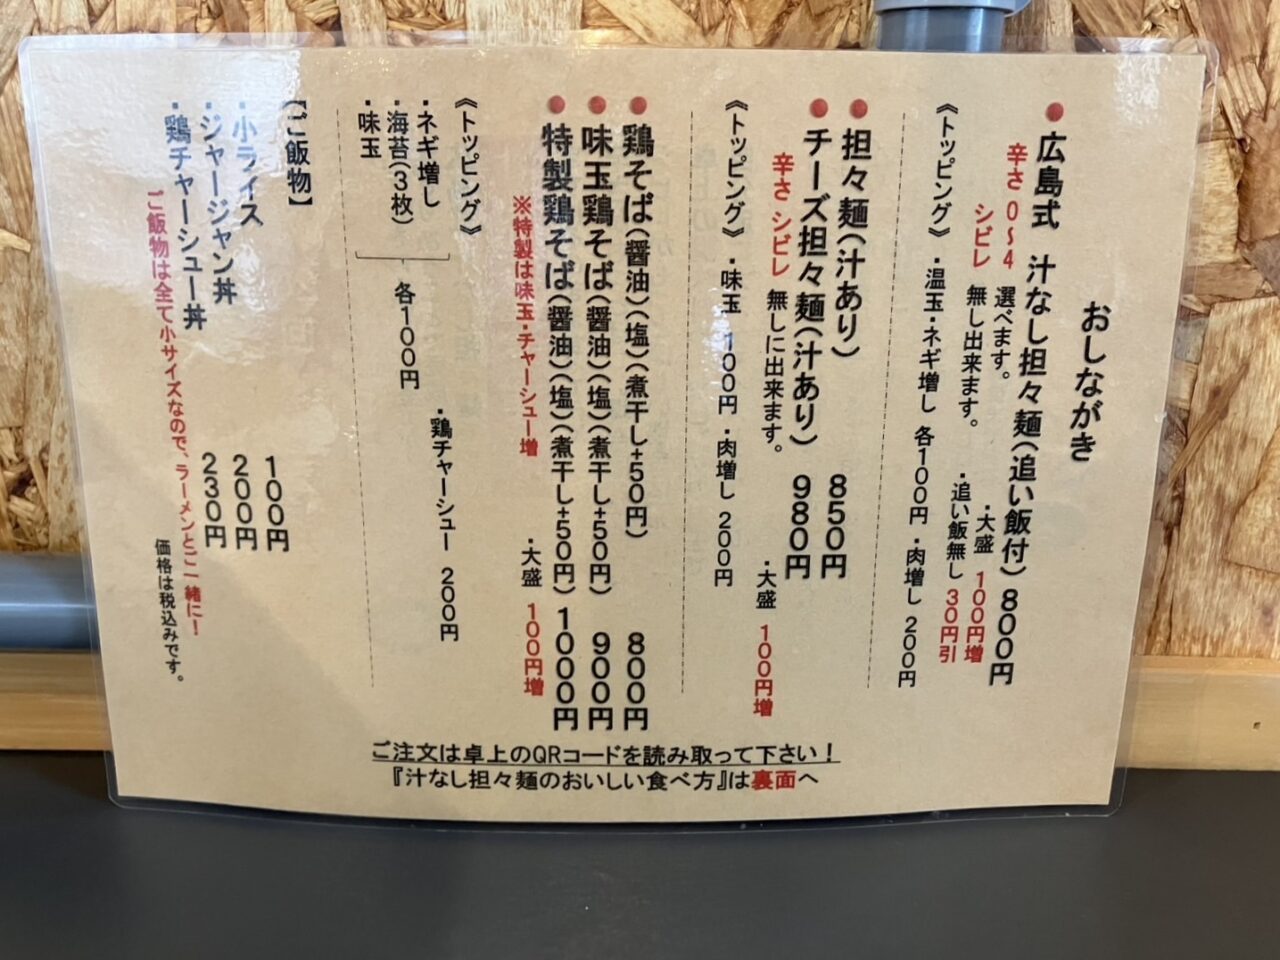 おしながき
● 広島式 汁なし担々麺(追い飯付) 800円
辛さ 0〜4 選べます。 ・大盛 100円増
シビレ 無し出来ます。 ・追い飯無し 30円引
《トッピング》 ・温玉・ネギ増し 各100円 ・肉増し 200円
● 担々麺(汁あり) 850円
● チーズ担々麺(汁あり) 980円
辛さ シビレ 無しに出来ます。 ・大盛 100円増
《トッピング》 ・味玉 100円 ・肉増し 200円
● 鶏そば(醤油)(塩)(煮干し+50円) 800円
● 味玉鶏そば(醤油)(塩)(煮干し+50円) 900円
● 特製鶏そば(醤油)(塩)(煮干し+50円) 1000円
※特製は味玉・チャーシュー増 ・大盛 100円増
《トッピング》
・ネギ増し
・海苔(3枚)
・味玉
各100円
・鶏チャーシュー 200円
【ご飯物】
・小ライス 100円
・ジャージャン丼 200円
・鶏チャーシュー丼 230円
ご飯物は全て小サイズなので、ラーメンとご一緒に!
価格は税込みです。
ご注文は卓上のQRコードを読み取って下さい!
『汁なし担々麺のおいしい食べ方』は裏面へ